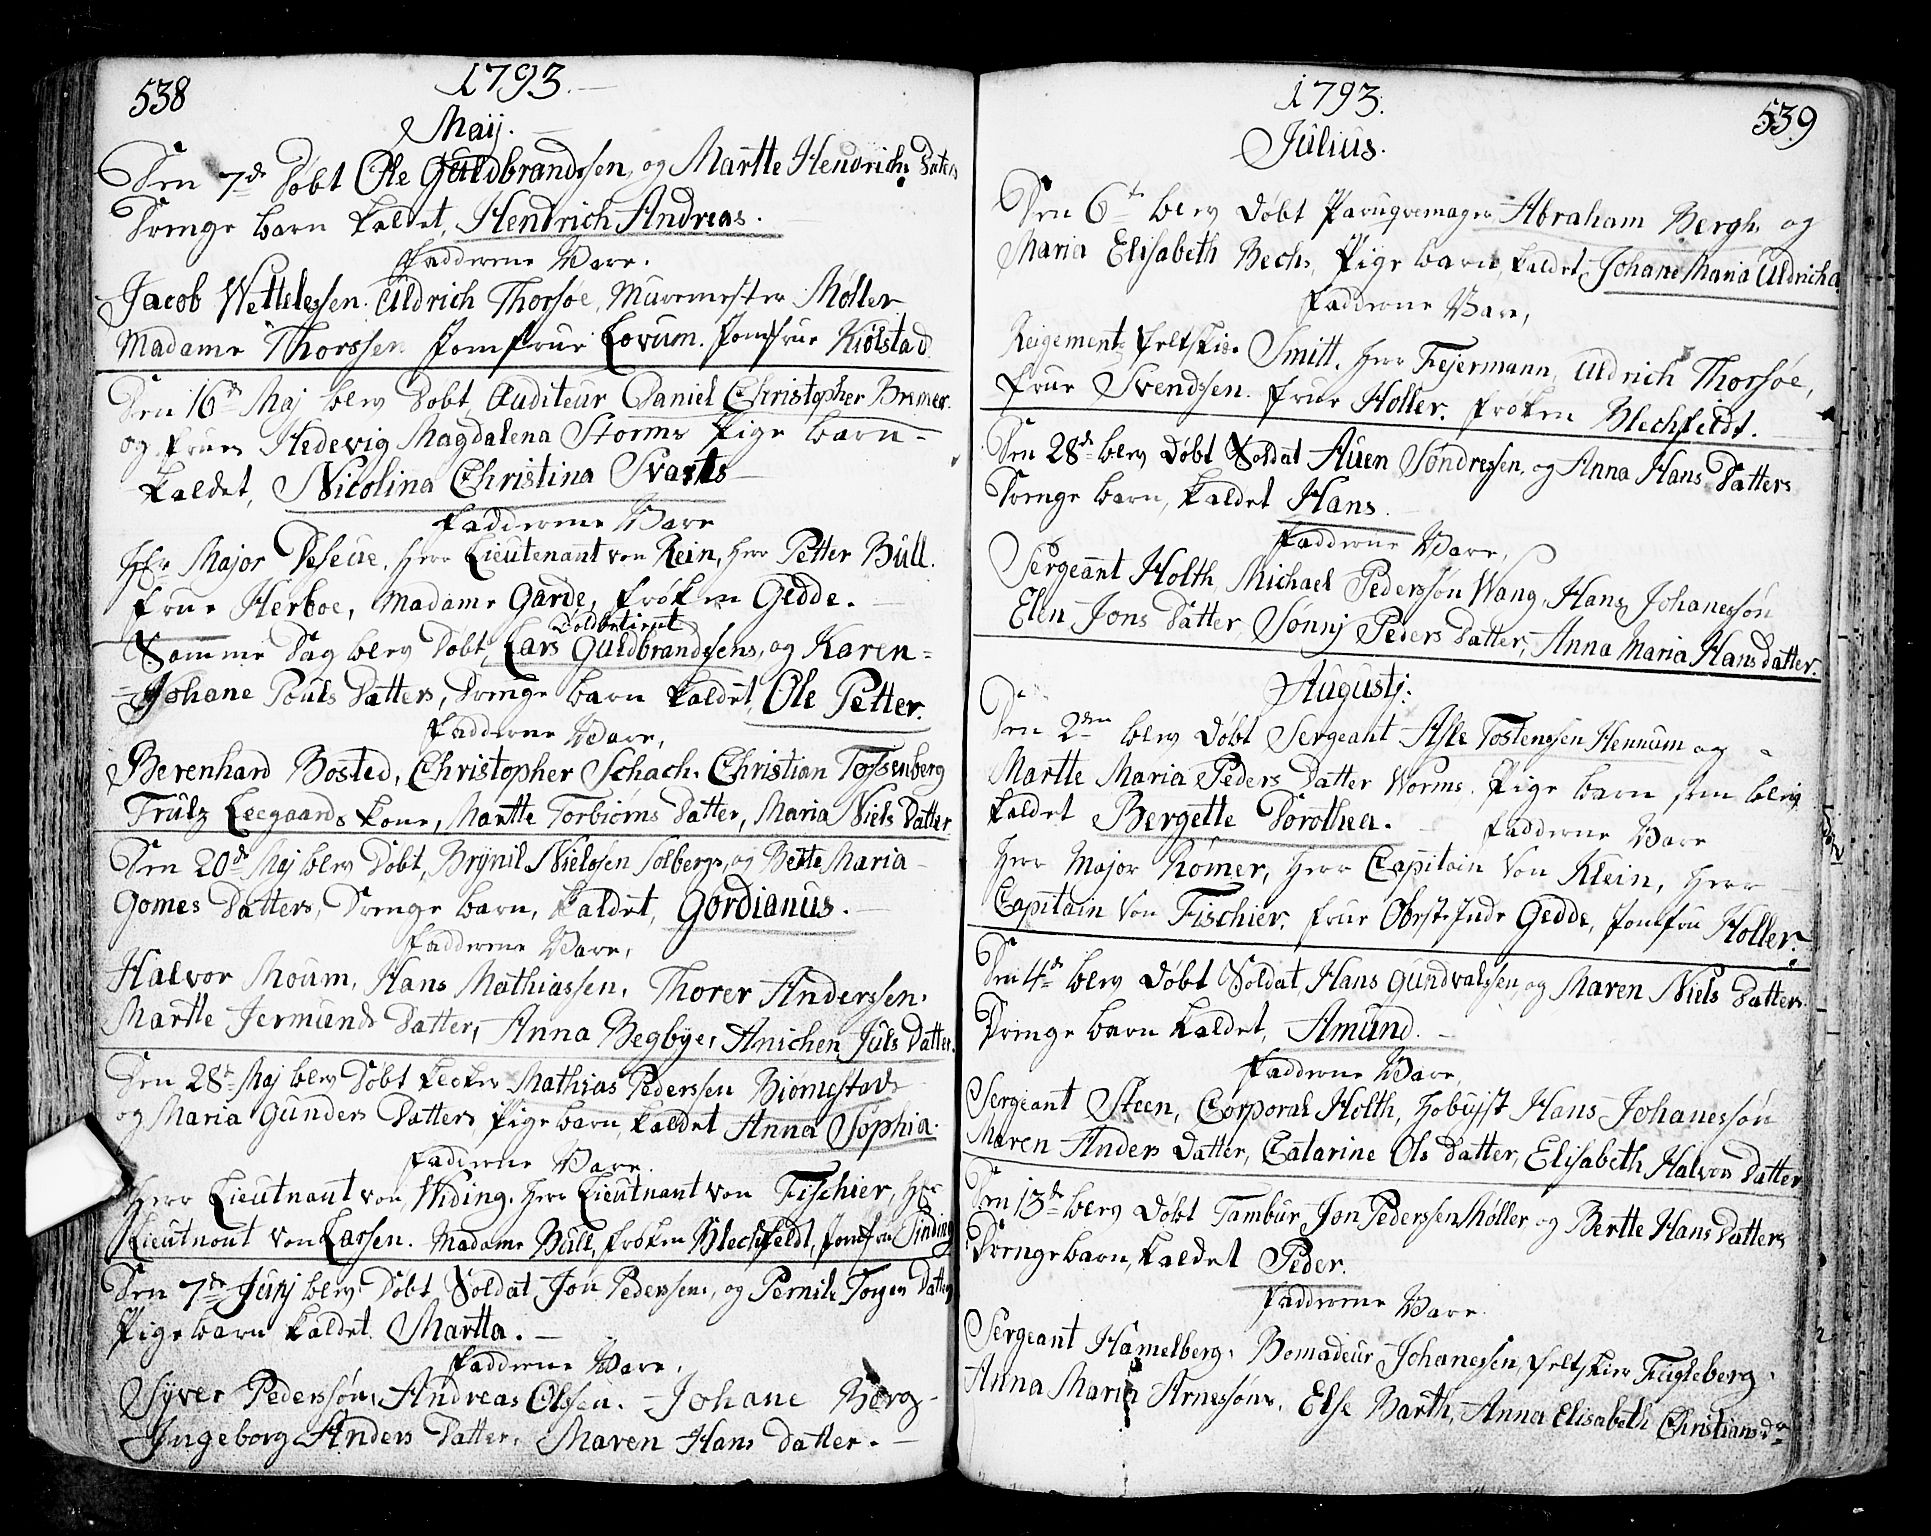 538
1793.
Maij.
Den 7de Døbt Ole Guldbrandssen, og Martte Hendrichs Daters
Drenge barn kaldet, Hendrich Andreas.
Fadderne Vare.
Jacob Wettelessen. Uldrich Thorsøe, Muremester Møller
Madame Thorssen Jomfrue Lovum. Jomfrue Kiølstad
Den 16de Maj blev Døbt, Auditeur Daniel Christopher Bremer.
og Frues Hedevig Magdalena Storms Pige barn
kaldet, Nicolina Christina Svarts
Fadderne Vare
Hr Major Deseue. Herr Lieutenant von Rein, Herr Petter Bull.
Frue Herboe, Madame Garde, Frøken Gedde.
Toldbetient
Samme Dag blev Døbt, Lars Guldbrandssens, og Karen
Johane Pouls Datters, Drenge barn kaldet, Ole Petter.
Fadderne Vare,
Berenhard Bosted, Christopher Schach. Christian Tossenberg
Trulz Leegaards kone, Martte Torbiørns Datter, Maria Niels Datter
Den 20de Maj blev Døbt, Brÿnil Nielssen Solbergs, og Bertte Maria
Gomes Datters, Drenge barn, kaldet, Gordianus.
Fadderne Vare,
Halvor Moum, Hans Mathiassen, Thorer Anderssen,
Martte Jermunds Datter, Anna Begbye, Anichen Juls Datter.
Den 28de Maj blev Døbt Mathias Pederssen Biørnestad
og Maria Gunders Datters Pige barn, kaldet Anna Sophia.
Fadderne Vare.
Herr Lieutnant von Widing. Herr Lieutnant von Fischier, Hr
Lieutnant von Larssen. Madame Bull, Frøken Blechfeldt, Jomfru Sinding
Den 7de Junj blev Døbt, Soldat Jon Pederssens, og Pernile Torgers Datters
Pige barn kaldet. Martta.
Fadderne Vare,
Syver Pederssøn, Andreas Olssen. Johane Berg
Ingeborg Anders Datter, Maren Hans Datter.
539
1793.
Julius.
Den 6te blev Døbt Paruqvemager Abraham Bergh. og
Maria Elisabeth Bechs, Pige barn, kaldet, Johane Maria Uldricha
Fadderne Vare,
Reigements Feltskier Smitt. Herr Fejermann, Uldrich Thorsøe,
Frue Svendssen. Frue Holler. Frøken Blechfeldt.
Den 28de blev Døbt Soldat Auen Sondressen, og Anna Hans Datters
Drenge barn, kaldet Hans.
Fadderne Vare,
Sergeant Holth, Michael Pederssøn Wang, Hans Johanessøn
Elen Jons Datter, Sønnj Peders Datter, Anna Maria Hansdatter.
Augustj:
Den 2den blev Døbt Sergeant Asle Tostenssen Hennum og
Martte Maria Peders Datter Worms. Pige barn som blev
kaldet Bergette Dorothea. Fadderne Vare
Herr Major Rømer, Herr Capitain von Klein, Herr
Capitain von Fischier. Frue Gedde, Jomfru Holler.
Den 4de blev Døbt Soldat, Hans Gundvalssen, og Maren Niels Datters
Drenge barn kaldet, Amund.
Fadderne Vare,
Sergeant Steen, Corporal Holth, Hans Johanessøn
Maren Anders Datter, Catarine Ols Datter, Elisabeth Halvors Datter
Den 13de blev Døbt Tambur Jon Pederssen Møller og Bertte Hans Datters
Drenge barn, kaldet Peder.
Fadderne Vare.
Sergeant Hamelberg, Bomadeur Johanessen, Feltskier Fugleberg,
Anna Maria Arnessøns, Else Barth, Anna Elisabeth Christiansdr